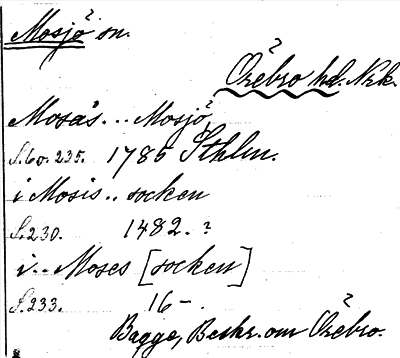 Mosjö sn.
Örebro hd. Nrk.
Mosås... Mosjö
S. 60. 235. 1785 Sthlm.
i Mosis.. socken
S. 230. 1482. ?
i... Moses [socken]
S. 233. 16–.
Bagge, Beskr. om Örebro.